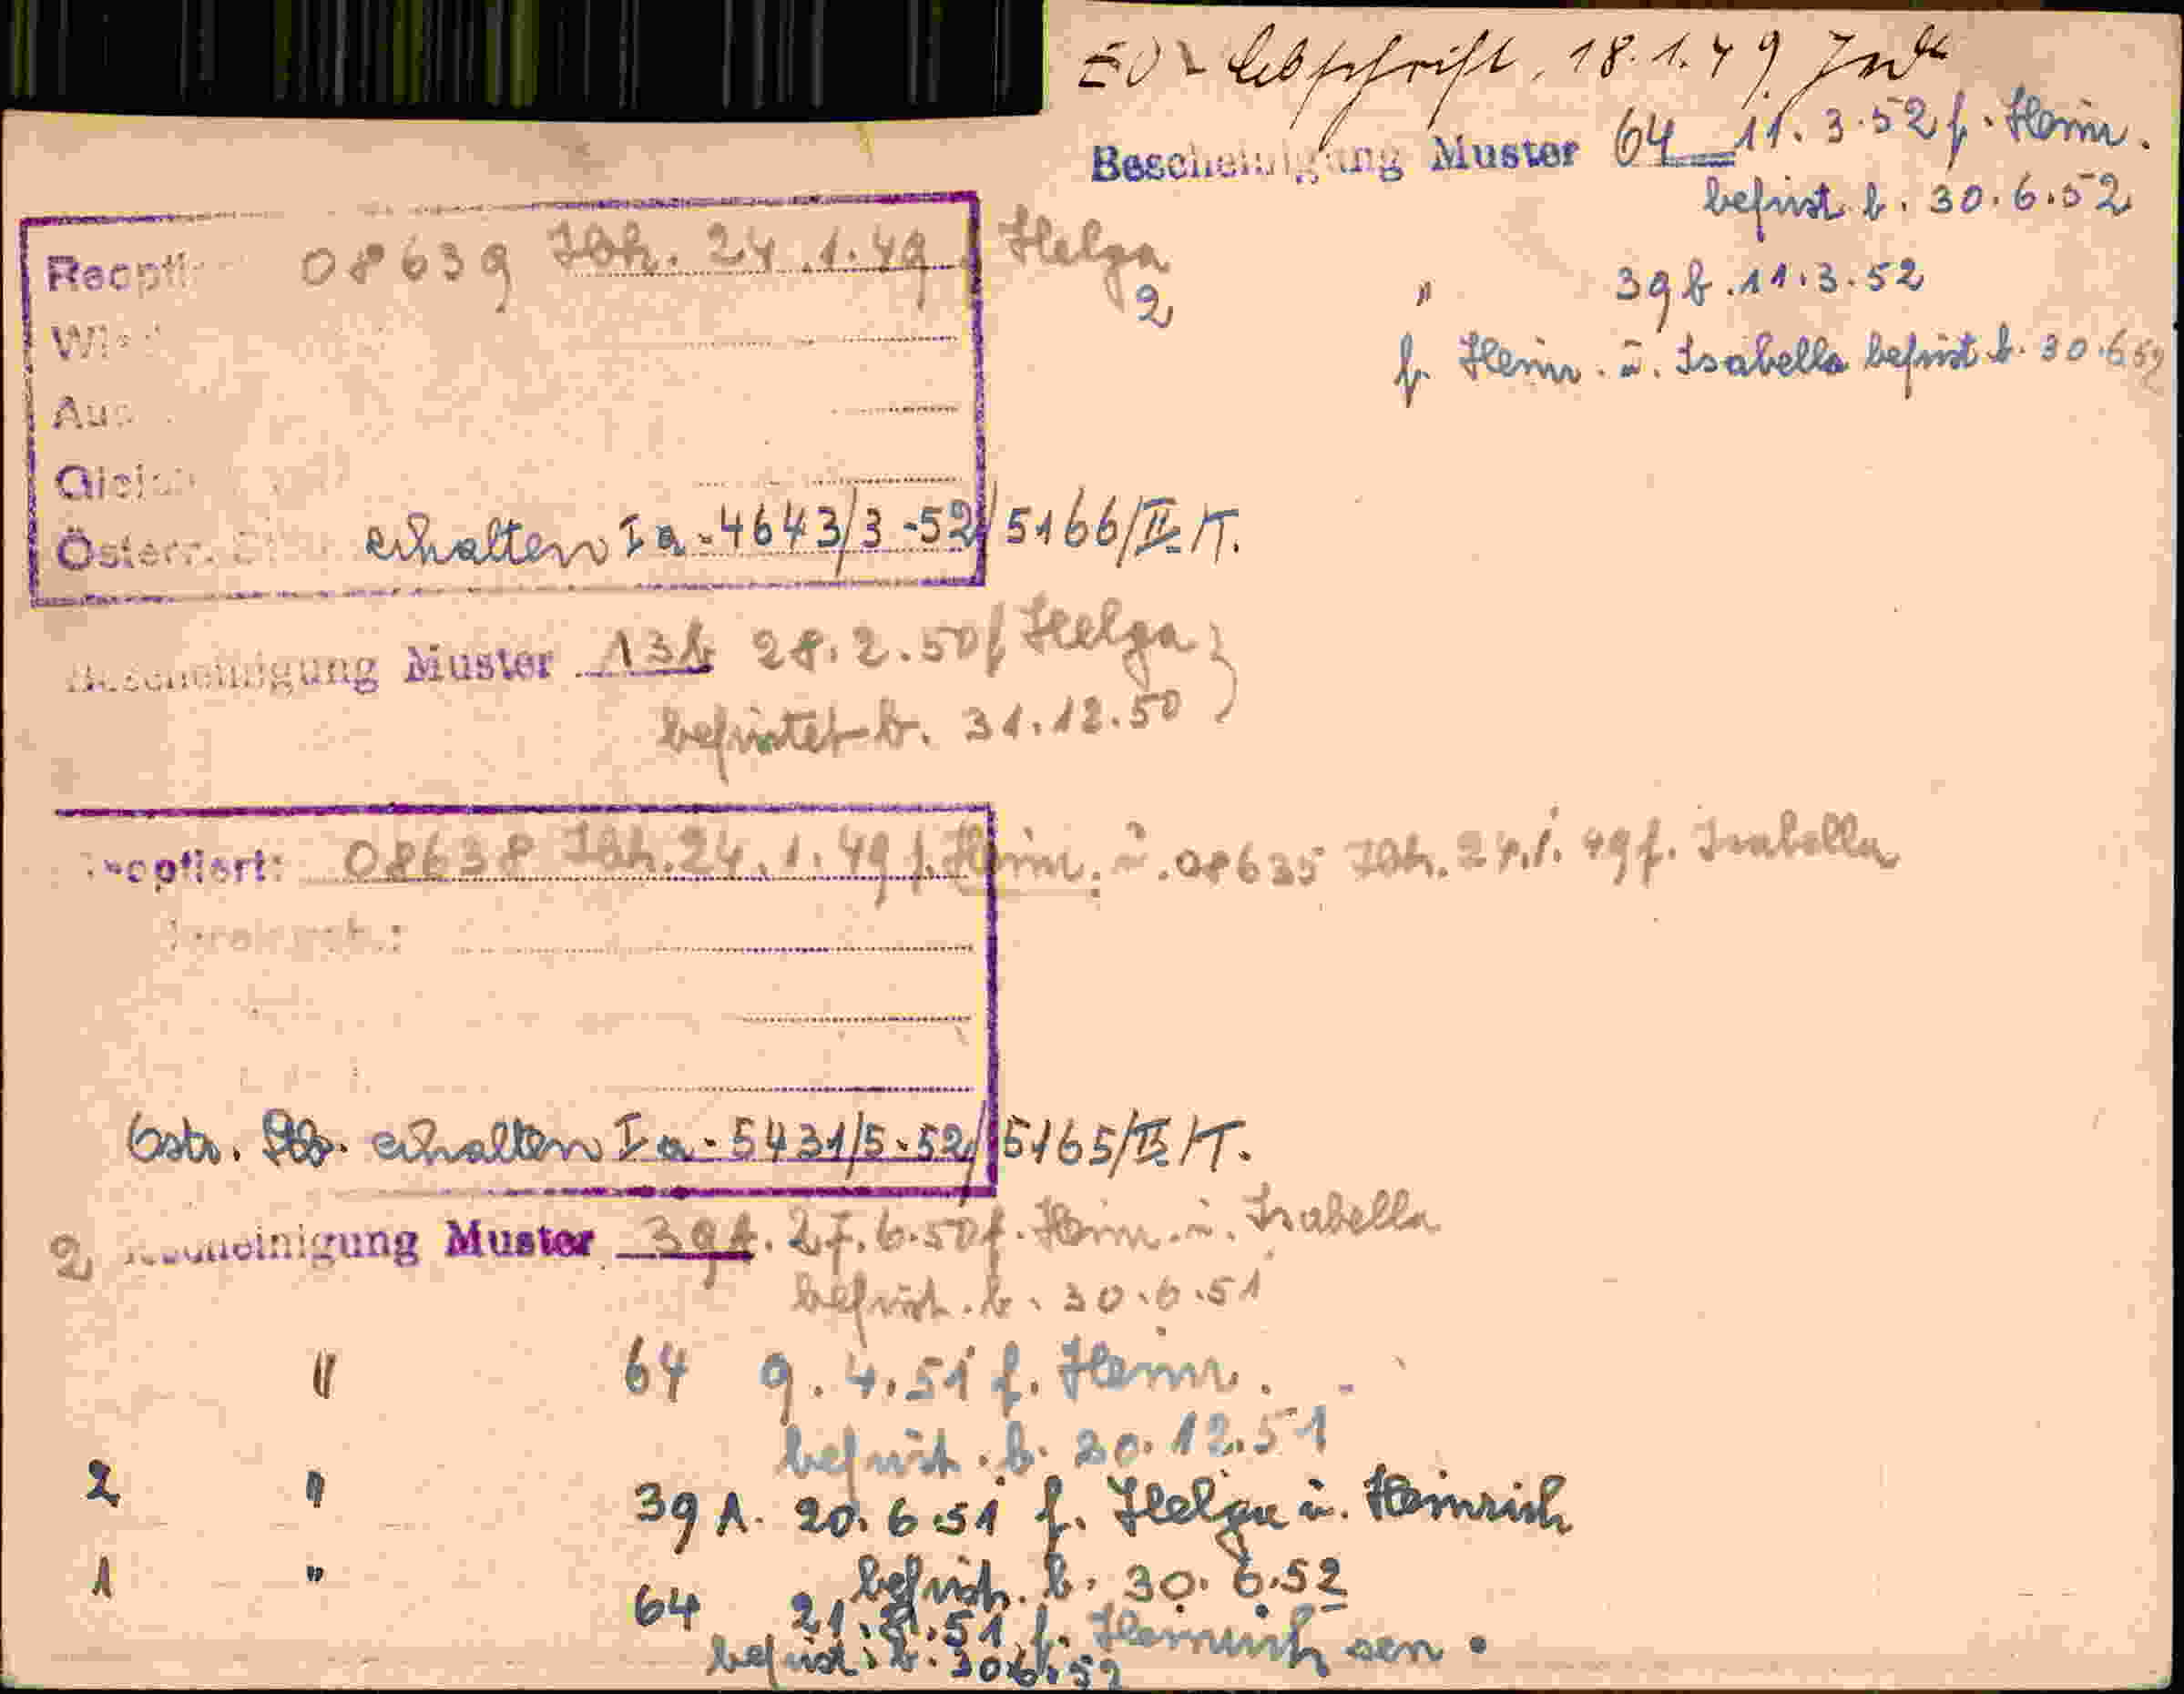 EU - Abschrift, 18.1.49
Bescheinigung Muster 64 11.3.52 f. Heinr.
befrist b. 30.6.52
" 39 b. 11.3.52
f. Heinr. u. Isabella befrist b. 30.6.52
08639 Ibk. 24.1.49 f. Helga
2
Österr. erhalten Ia-4643/3-52/5166/II/T.
Bescheinigung Muster 13b 28.2.50 f Helga
befristet b. 31.12.50
Reoptiert: 08638 Ibk. 24.1.49 f. Heinr. u. 08635 Ibk. 24.1.49 f. Isabella
Östr. Stb. erhalten Ia-5431/5-52/5165/II/T.
2 Bescheinigung Muster 39A. 27.6.50 f. Heinr. u. Isabella
befrist. b. 30.6.51
" 64 9.4.51 f. Heinr.
befrist. b. 20.12.51
2 " 39 A. 20.6.51 f. Helga u. Heinrich
befrist. b. 30.6.52
1 " 64 f. Heinrich sen.
befrist. b. 30.6.52